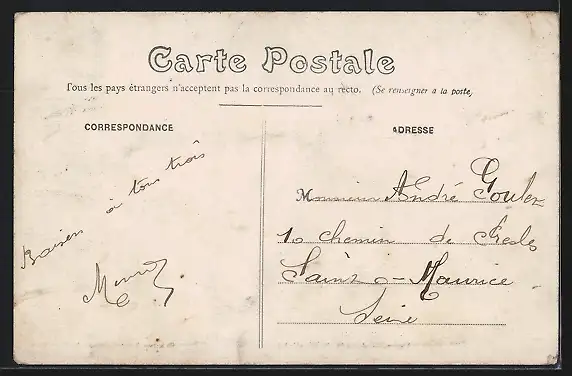 Carte Postale
Tous les pays étrangers n'acceptent pas la correspondance au recto. (Se renseigner à la poste)
CORRESPONDANCE
ADRESSE
Baisers à tous trois
Monsieur André
10 chemin de Presles
Saint-Maurice
Seine